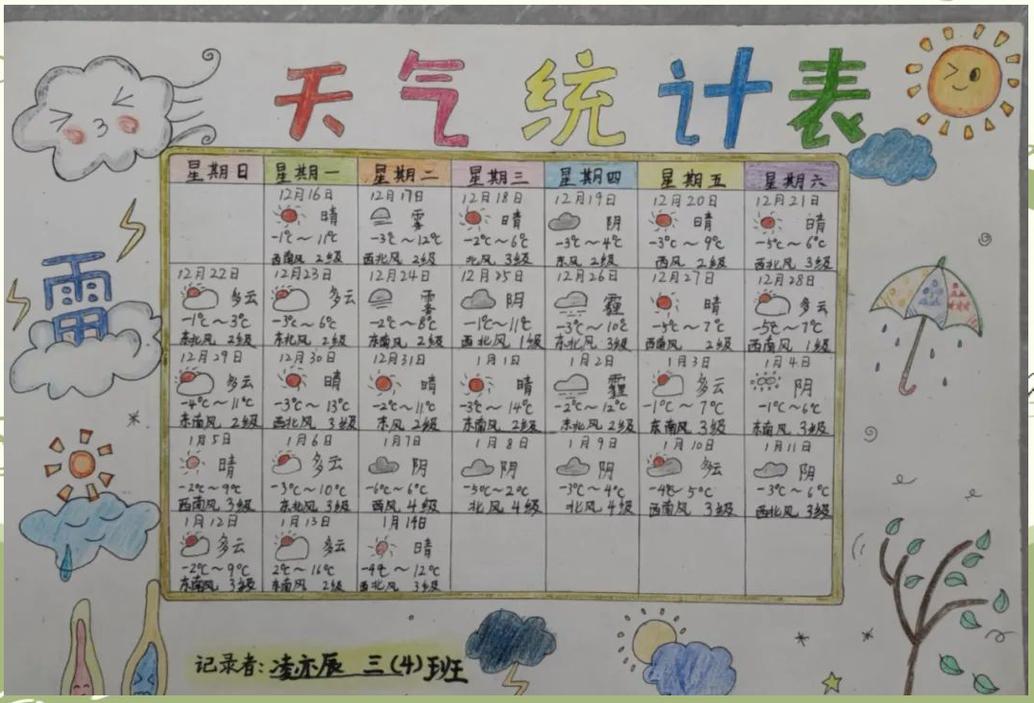 天气统计表
星期日 星期一 星期二 星期三 星期四 星期五 星期六
12月16日 12月17日 12月18日 12月19日 12月20日 12月21日
晴 雾 晴 阴 晴 晴
-1℃~11℃ -3℃~12℃ -2℃~6℃ -3℃~4℃ -3℃~9℃ -5℃~6℃
西南风 2级 西北风 2级 北风 3级 东风 2级 西风 2级 西北风 3级
12月22日 12月23日 12月24日 12月25日 12月26日 12月27日 12月28日
多云 多云 雾 阴 霾 晴 多云
-1℃~3℃ -3℃~6℃ -2℃~8℃ -1℃~11℃ -3℃~10℃ -5℃~7℃ -5℃~7℃
东北风 2级 东北风 2级 东南风 2级 西北风 1级 东北风 3级 西南风 2级 西南风 1级
12月29日 12月30日 12月31日 1月1日 1月2日 1月3日 1月4日
多云 晴 晴 晴 霾 多云 阴
-4℃~11℃ -3℃~13℃ -2℃~11℃ -3℃~14℃ -2℃~12℃ -1℃~7℃ -1℃~6℃
东南风 2级 西北风 3级 东风 2级 东南风 2级 东北风 2级 东南风 3级 东南风 3级
1月5日 1月6日 1月7日 1月8日 1月9日 1月10日 1月11日
晴 多云 阴 阴 阴 多云 阴
-2℃~9℃ -3℃~10℃ -6℃~6℃ -5℃~2℃ -3℃~4℃ -4℃~5℃ -3℃~6℃
西南风 3级 东北风 3级 西风 4级 北风 4级 北风 4级 西南风 3级 西北风 3级
1月12日 1月13日 1月14日
多云 多云 晴
-2℃~9℃ 2℃~16℃ -4℃~12℃
东南风 3级 东南风 2级 西北风 3级
雷
记录者:凌亦辰 三(4)班